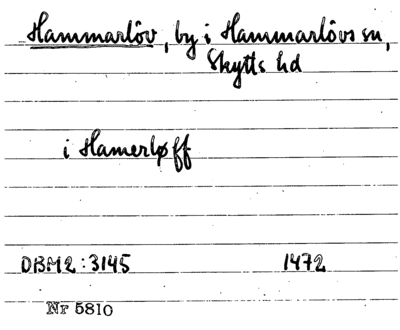 Hammarlöv, by i Hammarlövs sn,
Skytts hd
i Hamerløff
DBM2:3145 1472
Nr 5810